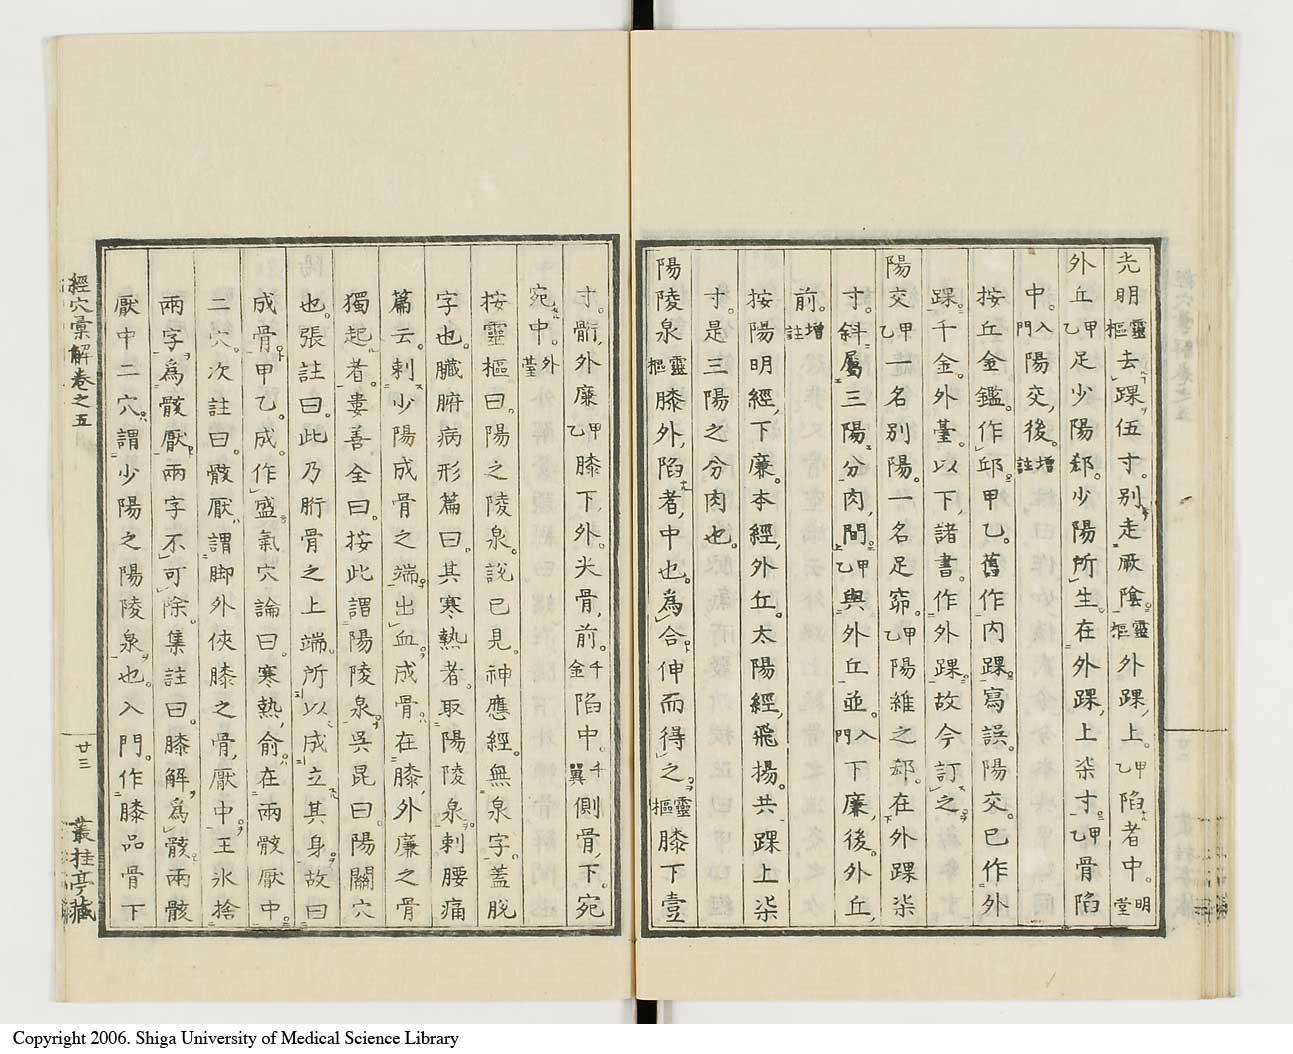 光明靈樞去踝伍寸。別走厥陰。靈樞外踝上。甲乙陷者中。明堂
外丘甲乙足少陽郄。少陽所生。在外踝上柒寸。甲乙骨陷
中。入門陽交後。增註
按丘金鑑。作邱。甲乙。舊作内踝。寫誤。陽交。已作外
踝。千金。外臺。以下諸書。作外踝。故今訂之。
陽交甲乙一名別陽。一名足窌。甲乙陽維之郄。在外踝柒
寸。斜屬三陽分肉間。甲乙與外丘並。入門下廉後外丘
前。增註
按陽明經。下廉。本經。外丘。太陽經。飛揚。共踝上柒
寸。是三陽之分肉也。
陽陵泉靈樞膝外陷者中也。爲合。伸而得之。靈樞膝下壹
寸。䯒外廉甲乙膝下外尖骨前。千金陷中。千翼側骨下。宛
宛中。外臺
按靈樞曰。陽之陵泉。說已見。神應經。無泉字。蓋脫
字也。臟腑病形篇曰。其寒熱者。取陽陵泉。刺腰痛
篇云。刺少陽成骨之端出血。成骨在膝外廉之骨
獨起者。婁善全曰。按此謂陽陵泉。吳昆曰。陽關穴
也。張註曰。此乃䯒骨之上端。所以成立其身。故曰
成骨。甲乙。成。作盛。氣穴論曰。寒熱俞。在兩骸厭中
二穴。次註曰。骸厭。謂脚外俠膝之骨厭中。王氷捨
兩字爲骸厭。兩字不可除。集註曰。膝解爲骸。兩骸
厭中二穴。謂少陽之陽陵泉也。入門。作膝品骨下
經穴彙解卷之五
廿三
叢桂亭藏
Copyright 2006. Shiga University of Medical Science Library